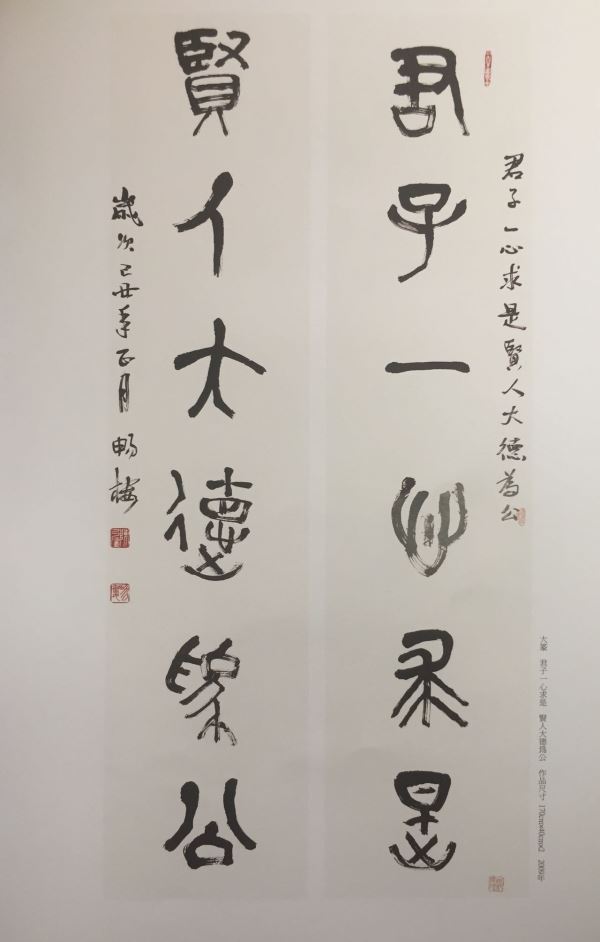 君子一心求是賢人大德為公
君子一心求是
賢人大德為公
歲次己丑年正月 暢梅
大篆 君子一心求是 賢人大德爲公 作品尺寸 170cmx40cmx2 2009年